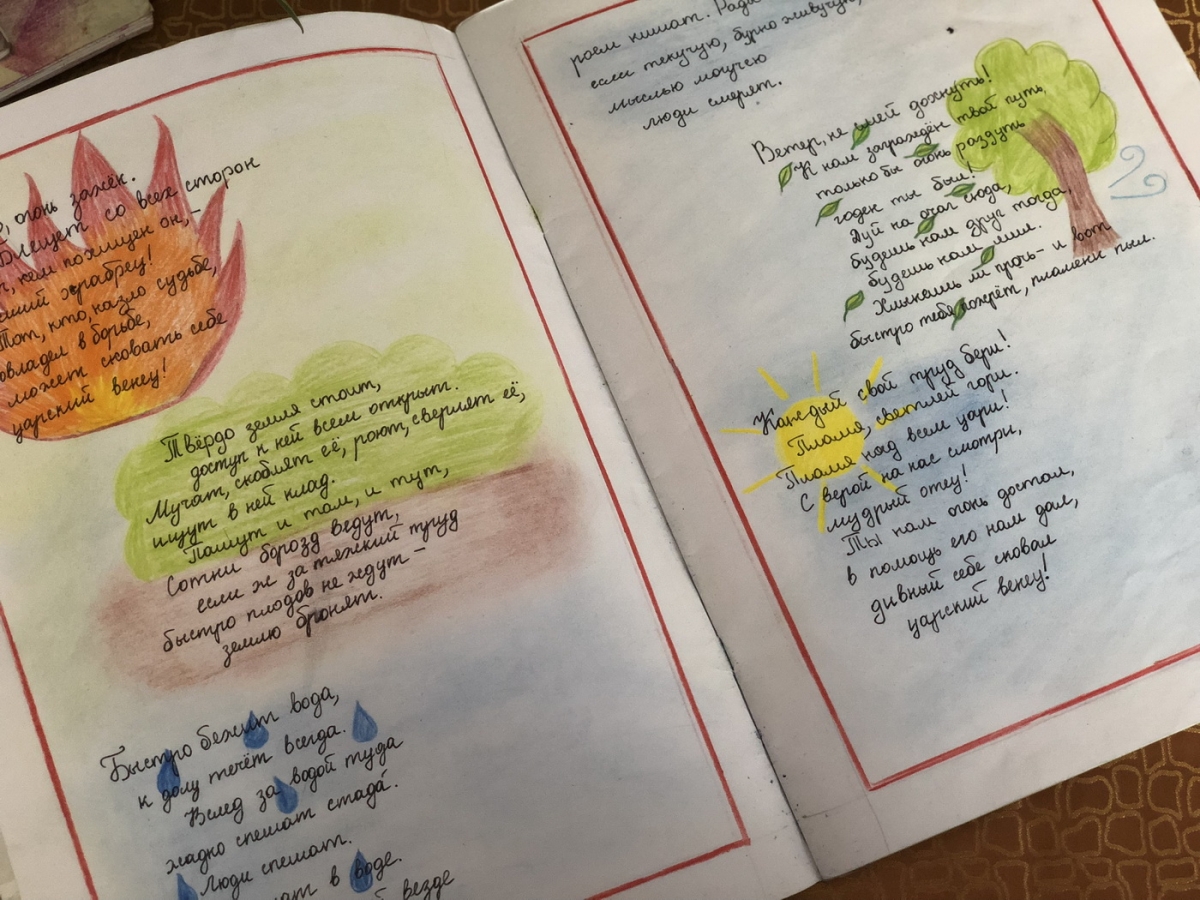 огонь зажён.
Блещет со всех сторон
кем похищен он,–
храбрец!
Тот, кто, назло судьбе,
овладел в борьбе,
может сковать себе
царский венец!
Твёрдо земля стоит,
доступ к ней всем открыт.
Мучат, скоблят её, роют, сверлят её,
ищут в ней клад.
Пашут и там, и тут,
Сотни борозд ведут,
если ж за тяжкий труд
быстро плодов не ждут –
землю бронят.
Быстро бежит вода,
к долу течёт всегда.
Вслед за водой туда
жадно спешат стада.
Люди спешат.
в воде.
везде
роем кишат. Рада
если текучую, бурно живучую,
мыслью могучею
люди смерят.
Ветер, не смей дохнуть!
К нам заграждён твой путь,
только бы огонь раздуть
годен ты был!
Дуй на очаг сюда,
будешь нам друг тогда,
будешь нам мил.
Хлынешь ли прочь– и вот
быстро тебя пожрёт, пламени пыл.
Каждый свой труд бери!
Пламя, светлей гори.
Пламя над всем цари!
С верой на нас смотри,
мудрый отец!
Ты нам огонь достал,
в помощь его нам дал,
дивный себе сковал
царский венец!